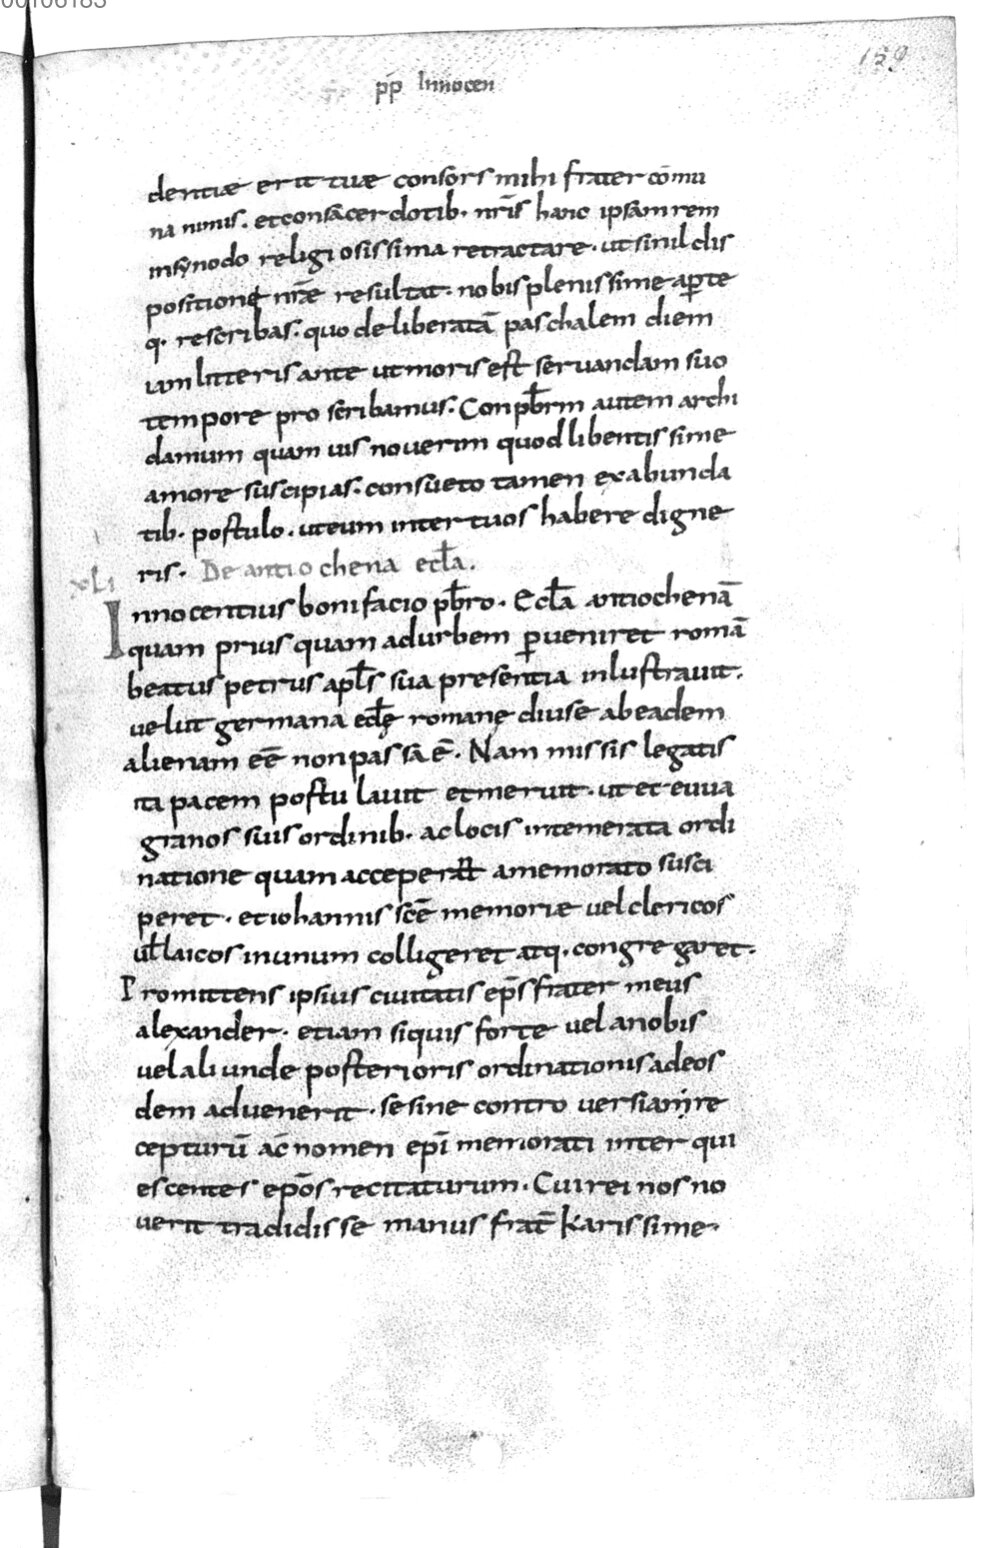 00106183
159
pp̄ Innocen
dentiae erit tuae consors mihi frater cōmu
na nimis. et consacerdotib. nr̄is hanc ipsam rem
in synodo religiosissima retractare. ut simil dis
positione nr̄ae resultat. nobis plenissime aperte
q. rescribas. quo deliberatā paschalem diem
iam litteris ante ut moris est servandam suo
tempore pro scribamus. Conpb̄rm autem archi
damum quam uis noverim quod libentissime
amore suscipias. consueto tamen ex abunda
tib. postulo. ut eum inter tuos habere digne
ris. De antiochena ecl̄a.
xli
Innocentius bonifacio pb̄ro. Ecl̄a antiochenā
quam prius quam ad urbem perveniret romā
beatus petrus apl̄s sua presentia inlustravit.
velut germana ecl̄ę romanę diu se ab eadem
alienam eē non passa ē. Nam missis legatis
ita pacem postulavit et meruit. ut et euua
grianos suis ordinib. ac locis intemerata ordi
natione quam acceperat̄ a memorato susci
peret. et iohannis scē memoriae vel clericos
ul̄ laicos in unum colligeret atq. congregaret.
Promittens ipsius civitatis ep̄s frater meus
alexander. etiam siquis forte vel a nobis
vel aliunde posterioris ordinationis ad eos
dem advenerit. se sine controversia re
cepturū ac̄ nomen epi memorati inter qui
escentes epōs recitaturum. Cui rei nos no
verit tradidisse manus frat̄ karissime.